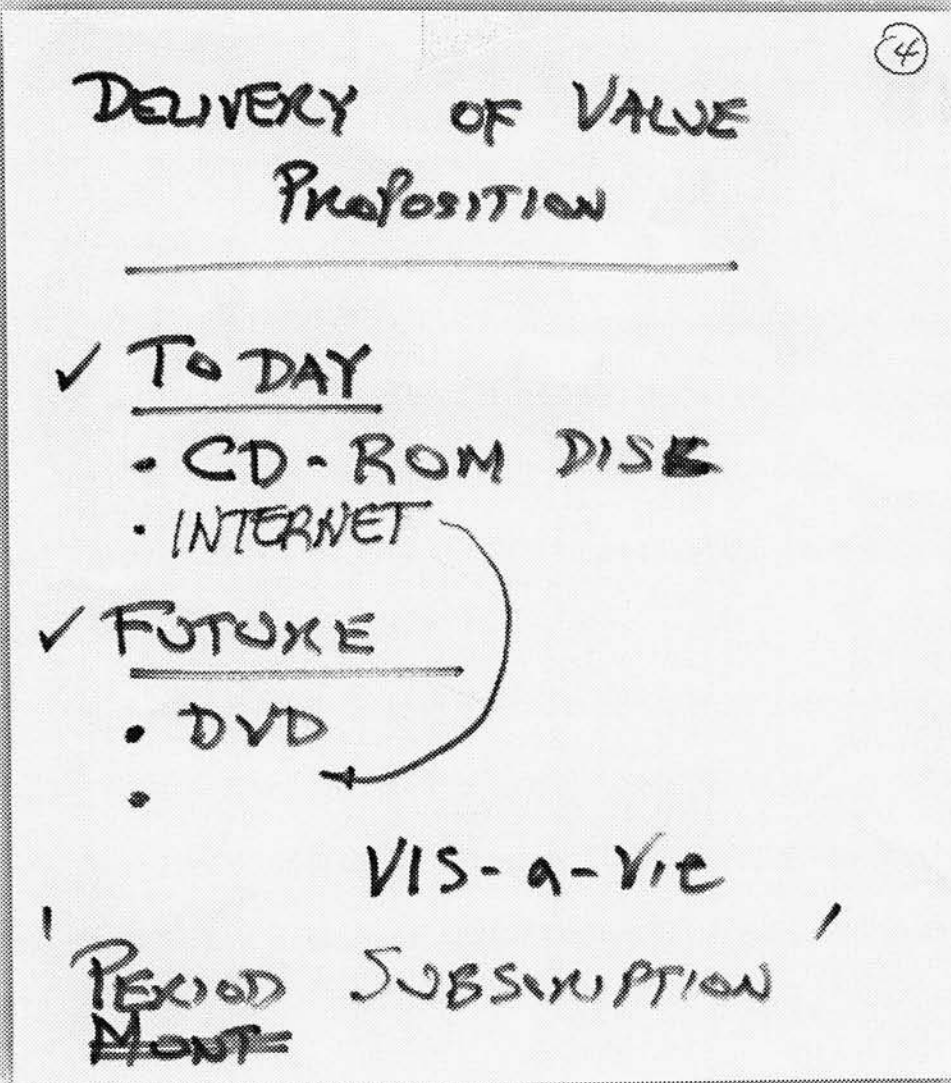 4
DELIVERY OF VALUE
PROPOSITION
✓ TODAY
• CD-ROM DISK
• INTERNET
✓ FUTURE
• DVD
•
VIS-a-Vie
'PERIOD SUBSCRIPTION'
MONT